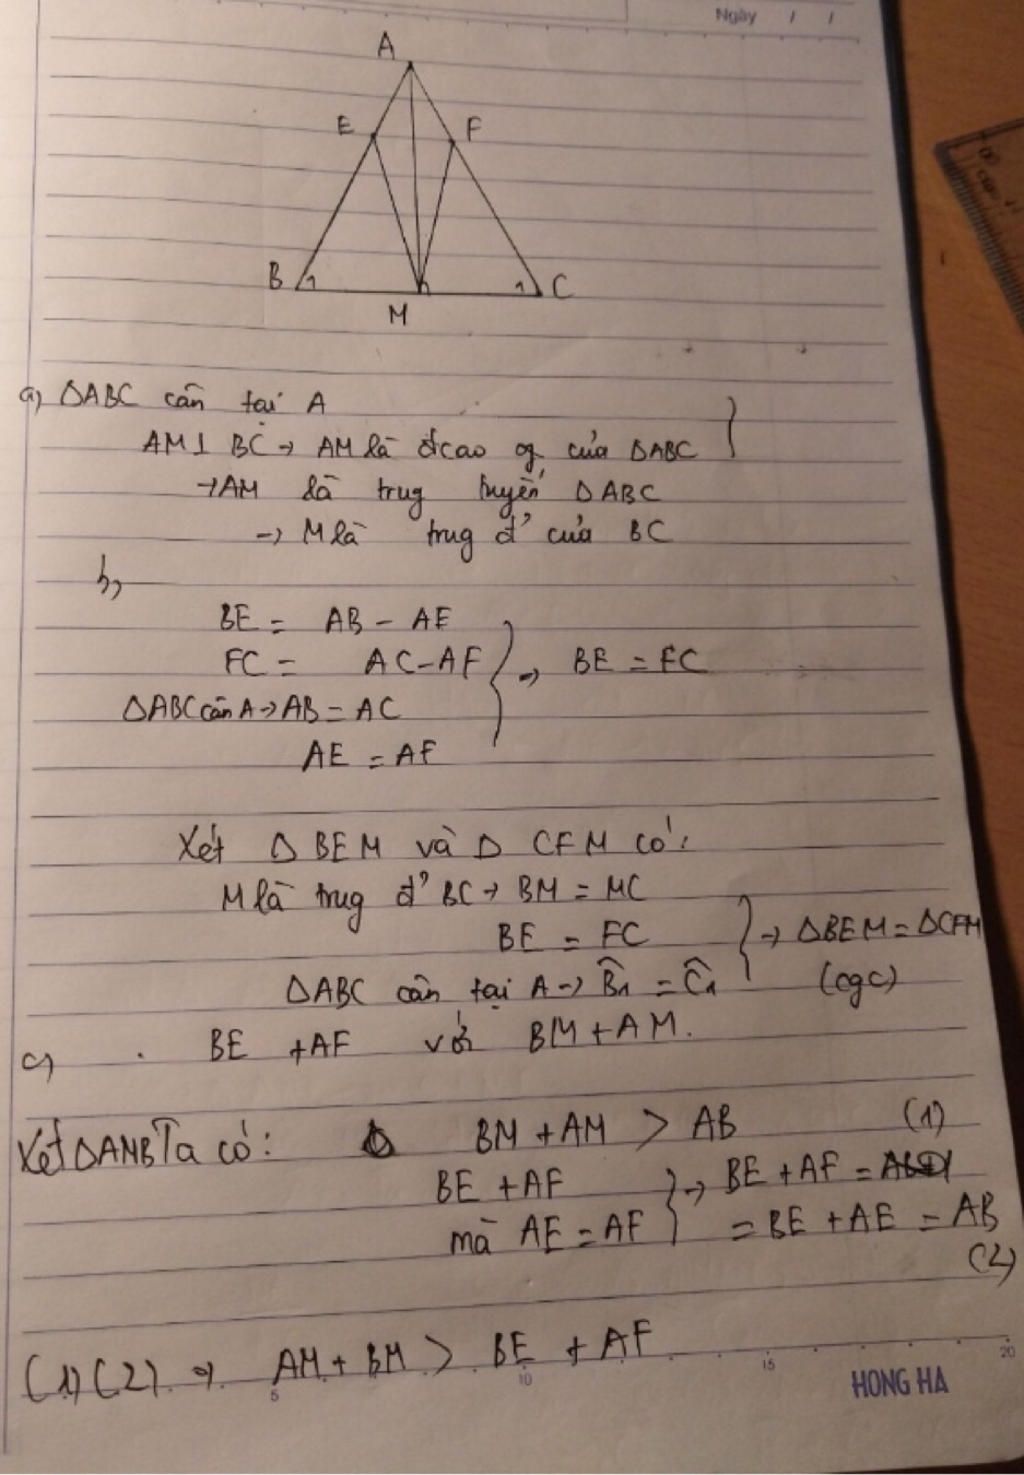 Ngày / /
A
E F
B 1 1 C
M
a, ΔABC cân tại A
AM⊥ BC → AM là đcao of của ΔABC
→AM là trug tuyến ΔABC
→ M là trug đ' của BC
b,
BE = AB - AE
FC = AC-AF → BE = FC
ΔABC cân A→AB = AC
AE = AF
Xét Δ BEM và Δ CFM có:
M là trug đ' BC → BM = MC
BE = FC → ΔBEM = ΔCFM
ΔABC cân tại A→ B̂1 = Ĉ1 (cgc)
c, BE + AF với BM + AM.
Xét ΔAMB Ta có: BM + AM > AB (1)
BE + AF → BE + AF =
mà AE = AF = BE + AE = AB
(2)
(1)(2) ⇒ AM + BM > BE + AF
5 10 15 20
HONG HA